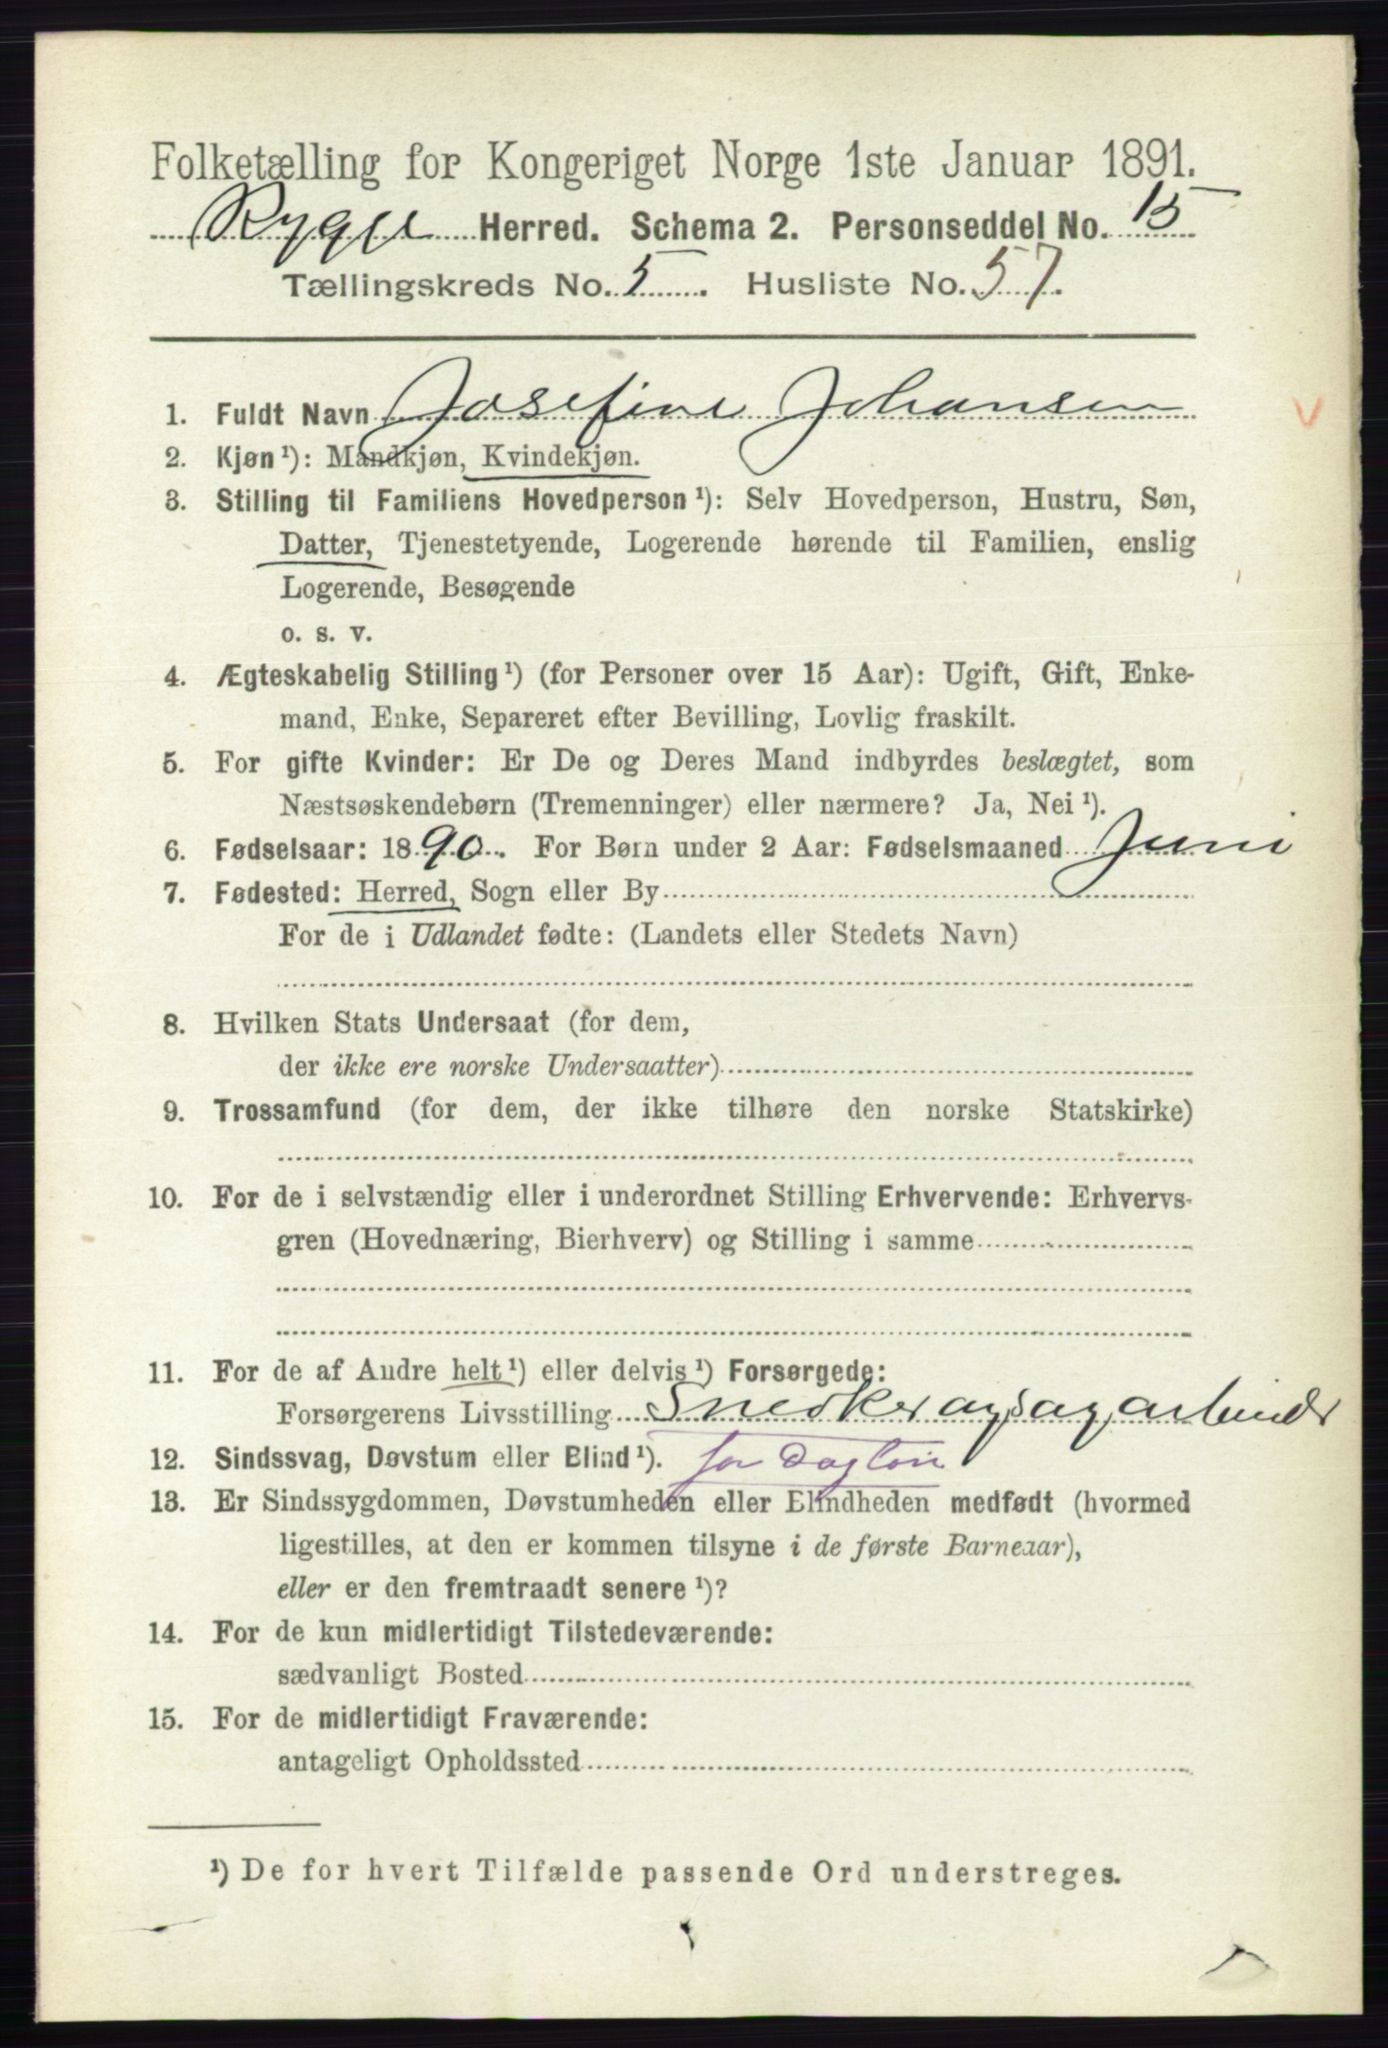 Folketælling for Kongeriget Norge 1ste Januar 1891.
Rygge Herred. Schema 2. Personseddel No. 15
Tællingskreds No. 5. Husliste No. 57.
1. Fuldt Navn Josefine Johansen
2. Kjøn¹): Mandkjøn, Kvindekjøn.
3. Stilling til Familiens Hovedperson¹): Selv Hovedperson, Hustru, Søn,
Datter, Tjenestetyende, Logerende hørende til Familien, enslig
Logerende, Besøgende
o. s. v.
4. Ægteskabelig Stilling¹) (for Personer over 15 Aar): Ugift, Gift, Enke-
mand, Enke, Separeret efter Bevilling, Lovlig fraskilt.
5. For gifte Kvinder: Er De og Deres Mand indbyrdes beslægtet, som
Næstsøskendebørn (Tremenninger) eller nærmere? Ja, Nei¹).
6. Fødselsaar: 1890. For Børn under 2 Aar: Fødselsmaaned Juni
7. Fødested: Herred, Sogn eller By
For de i Udlandet fødte: (Landets eller Stedets Navn)
8. Hvilken Stats Undersaat (for dem,
der ikke ere norske Undersaatter)
9. Trossamfund (for dem, der ikke tilhøre den norske Statskirke)
10. For de i selvstændig eller i underordnet Stilling Erhvervende: Erhvervs-
gren (Hovednæring, Bierhverv) og Stilling i samme
11. For de af Andre helt¹) eller delvis¹) Forsørgede:
Forsørgerens Livsstilling Snedker og sagarbeider
12. Sindssvag, Døvstum eller Blind¹). for Dagløn
13. Er Sindssygdommen, Døvstumheden eller Blindheden medfødt (hvormed
ligestilles, at den er kommen tilsyne i de første Barneaar),
eller er den fremtraadt senere¹)?
14. For de kun midlertidigt Tilstedeværende:
sædvanligt Bosted
15. For de midlertidigt Fraværende:
antageligt Opholdssted
¹) De for hvert Tilfælde passende Ord understreges.